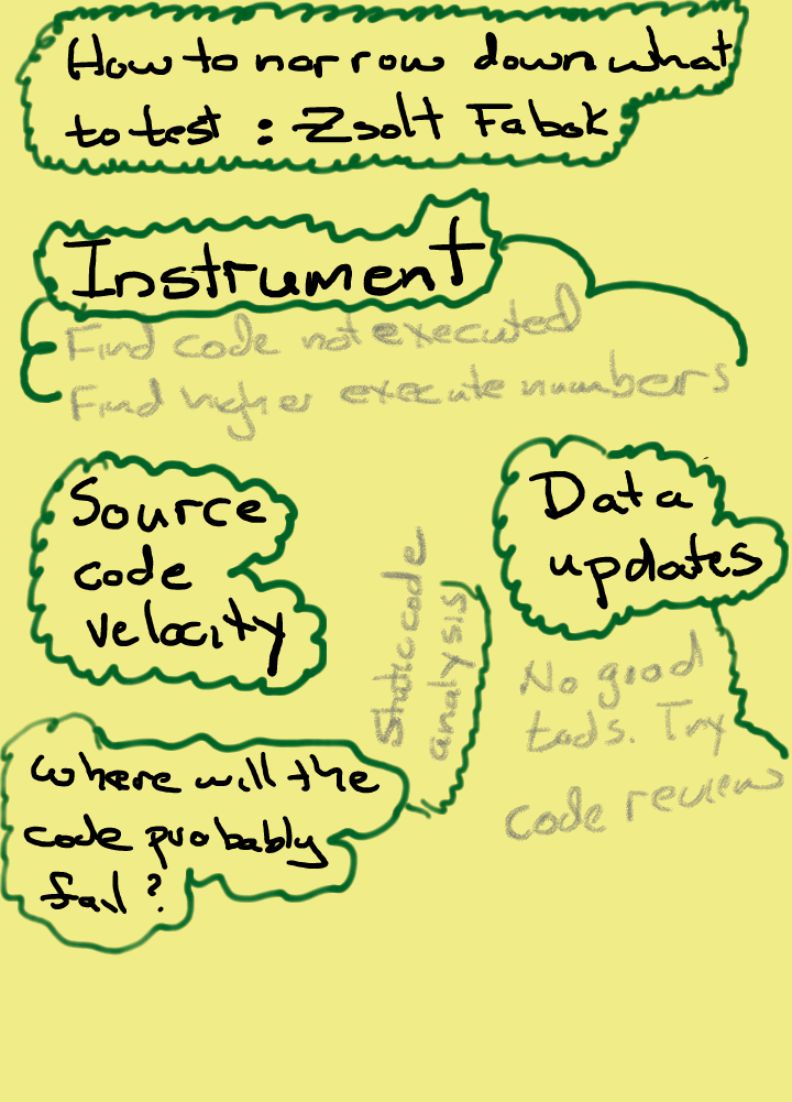 How to narrow down what
to test : Zsolt Fabok
Instrument
Find code not executed
Find higher execute numbers
Source
code
velocity
Data
updates
Static code
analysis
No good
tads. Try
code review
Where will the
code probably
fail?